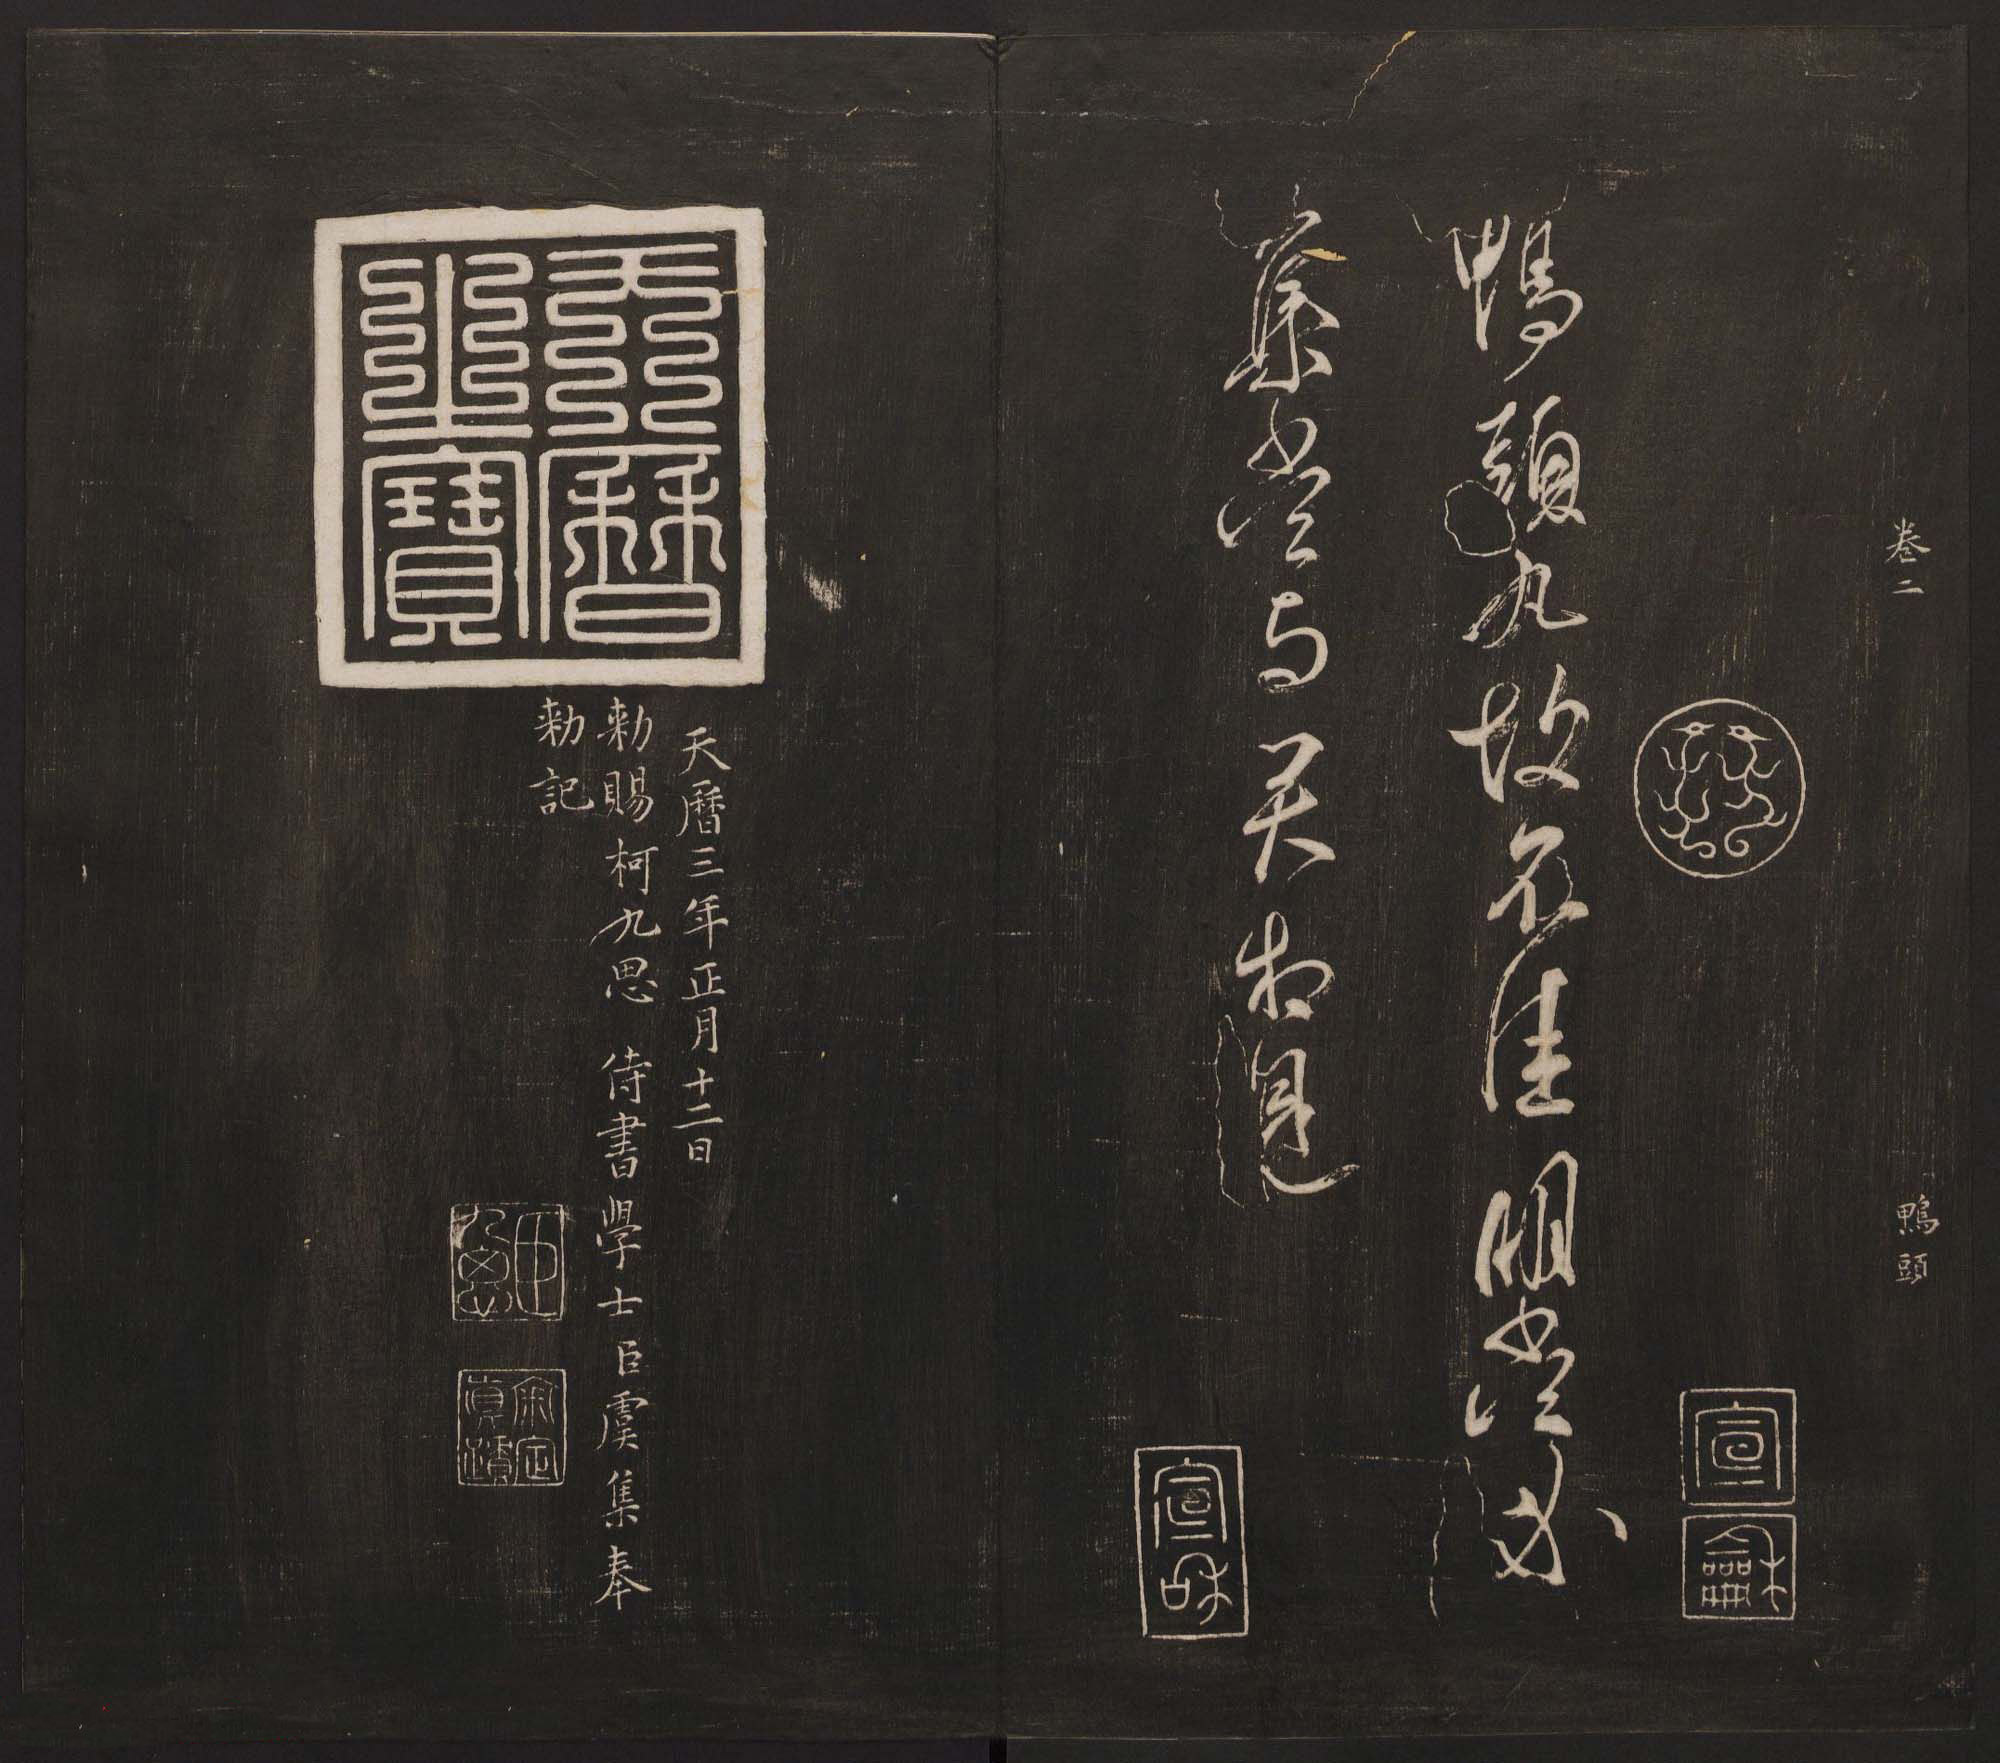 卷二
鴨頭
宣龢
鴨頭丸故不佳明當必
集當與君相見
宣和
天曆之寶
天曆三年正月十二日
勑賜柯九思侍書學士臣虞集奉
勑記
柯九思